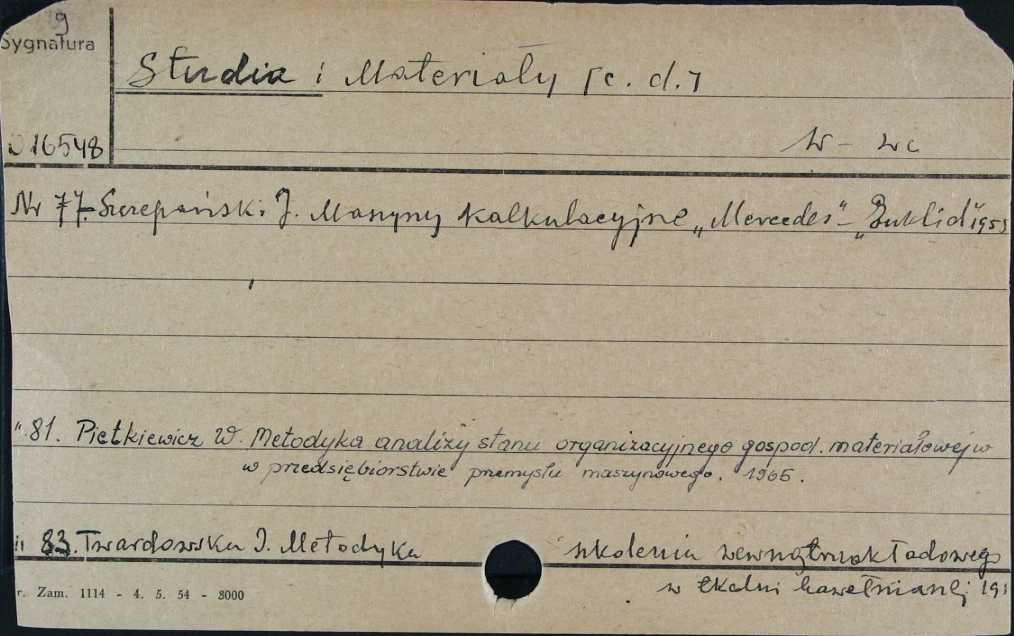 9
Sygnatura
Studia i Materiały [c.d.]
16548
W-wa
Nr 77. Szczepański J. Maszyny kalkulacyjne „Mercedes" - „Euklid" 1955
" 81. Pietkiewicz W. Metodyka analizy stanu organizacyjnego gospod. materiałowej w
w przedsiębiorstwie przemysłu maszynowego. 1965.
" 83. Twardowska I. Metodyka szkolenia wewnątrzzakładowego
w tkalni bawełnianej 19
r. Zam. 1114 - 4. 5. 54 - 8000